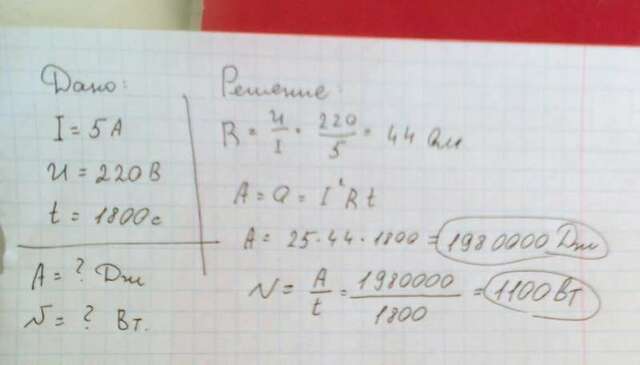 Дано:
I = 5 А
U = 220 В
t = 1800 с
A = ? Дж
N = ? Вт.
Решение:
R = U/I = 220/5 = 44 Ом
A = Q = I² R t
A = 25 · 44 · 1800 = 1980000 Дж
N = A/t = 1980000/1800 = 1100 Вт